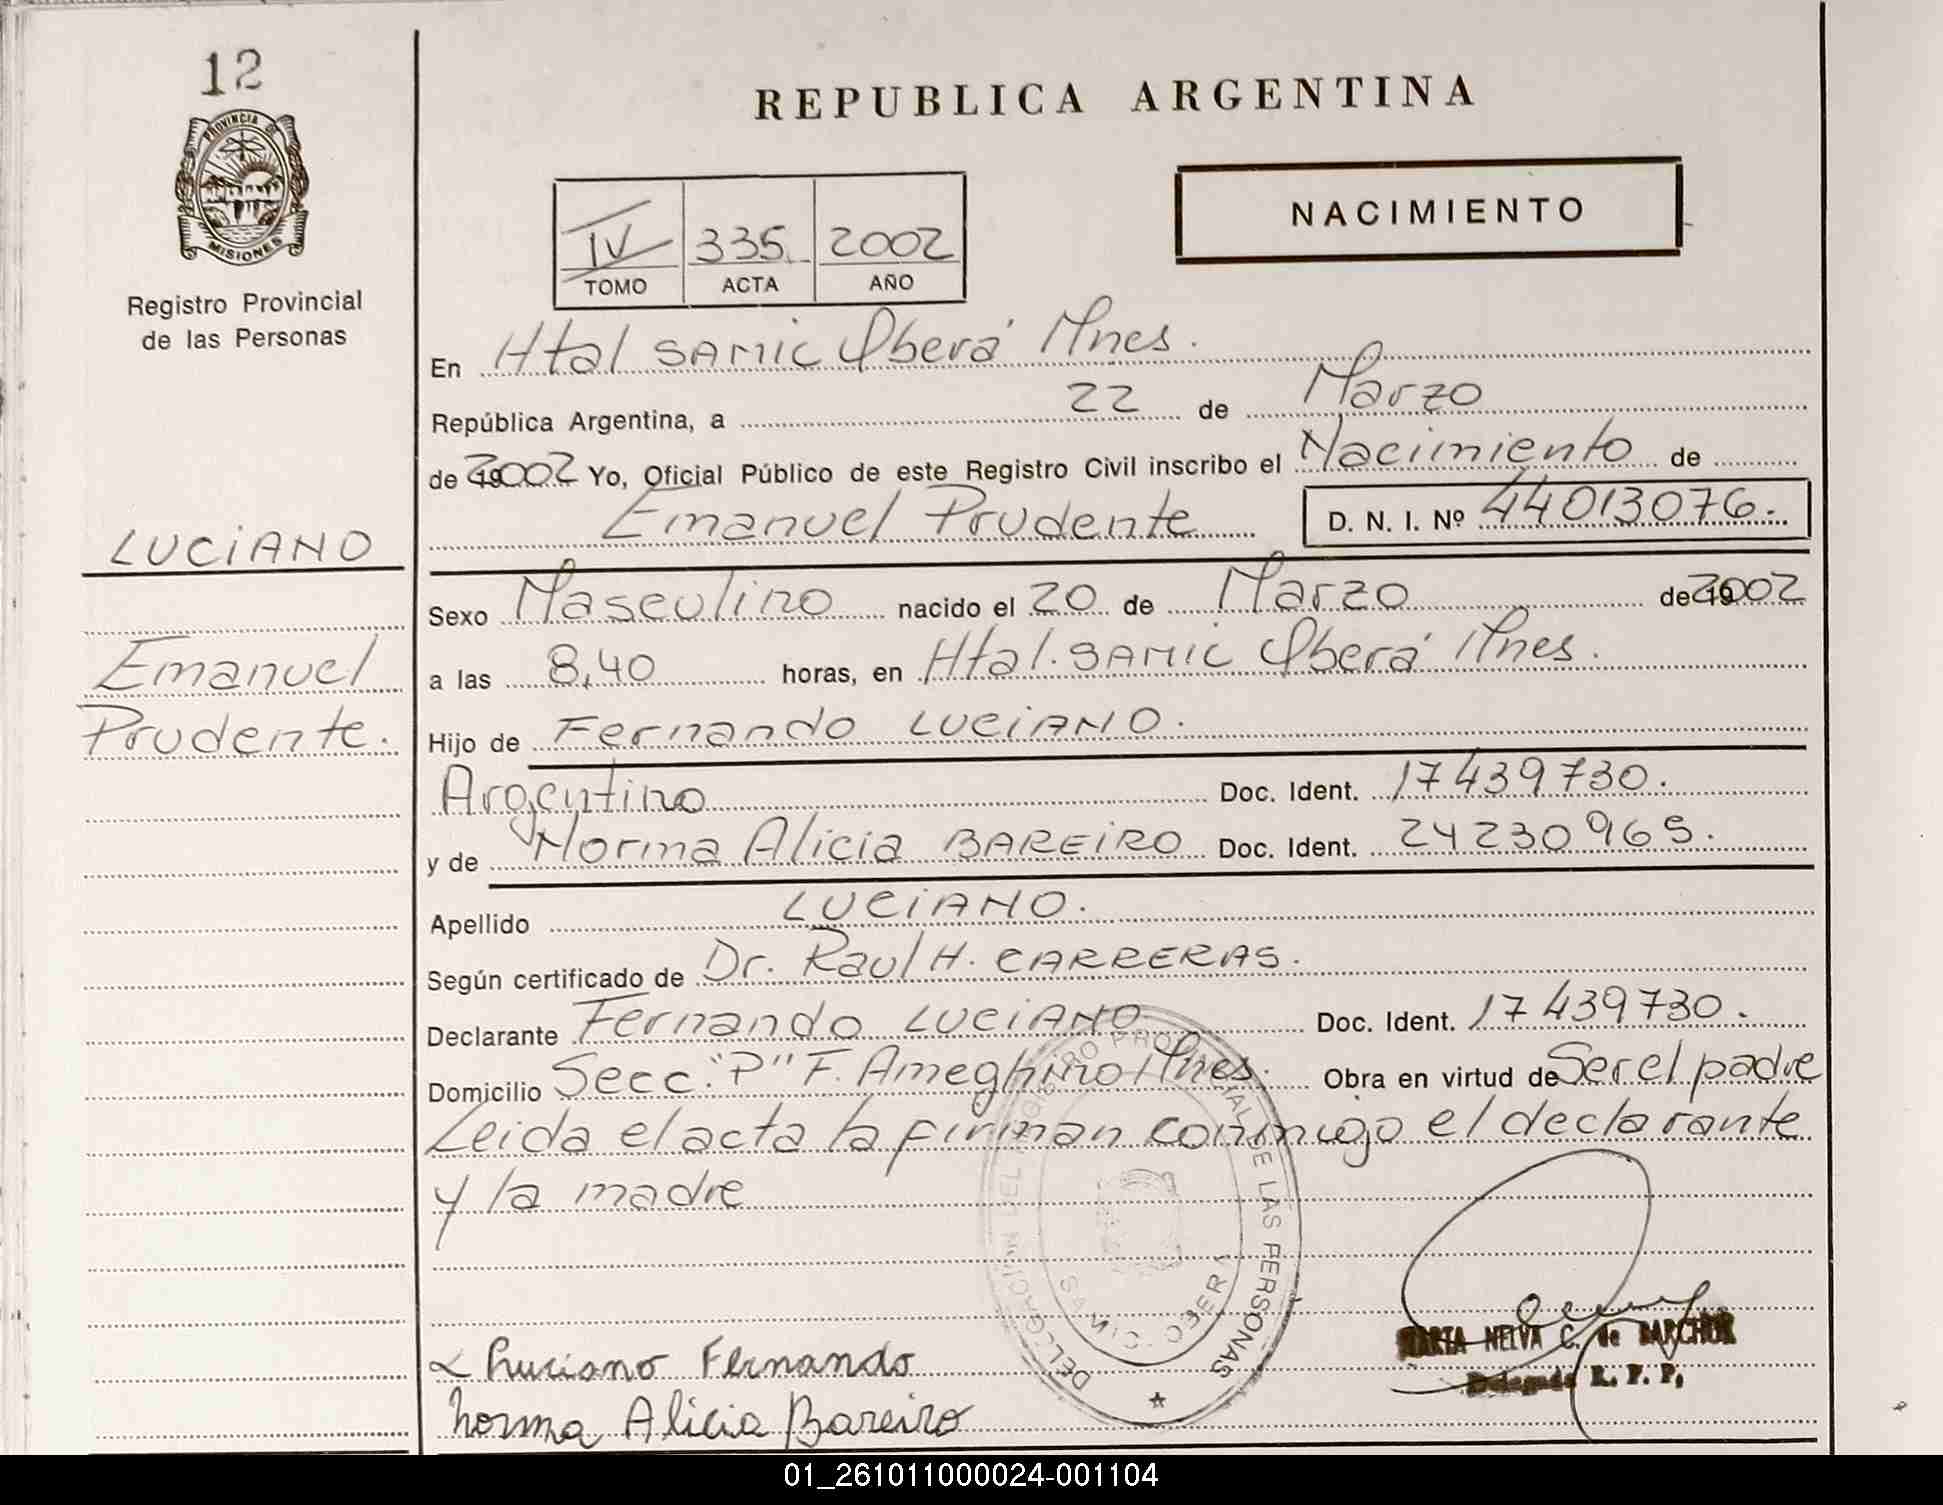 12
PROVINCIA DE
MISIONES
Registro Provincial
de las Personas
REPUBLICA ARGENTINA
NACIMIENTO
IV 335 2002
TOMO ACTA AÑO
En Htal SAMIC Oberá Mnes.
República Argentina, a 22 de Marzo
de 2002 Yo, Oficial Público de este Registro Civil inscribo el Nacimiento de
Emanuel Prudente D. N. I. Nº 44013076.
LUCIANO
Emanuel
Prudente.
Sexo Masculino nacido el 20 de Marzo de 2002
a las 8,40 horas, en Htal. SAMIC Oberá Mnes.
Hijo de Fernando LUCIANO.
Argentino Doc. Ident. 17439730.
y de Norma Alicia BAREIRO Doc. Ident. 24230965.
Apellido LUCIANO.
Según certificado de Dr. Raul H. CARRERAS.
Declarante Fernando LUCIANO Doc. Ident. 17439730.
Domicilio Secc. "P" F. Ameghino Mnes. Obra en virtud de Ser el padre
Leida el acta la firman conmigo el declarante
y la madre
REGISTRO PROVINCIAL DE LAS PERSONAS
Luciano Fernando
Norma Alicia Bareiro
MARTA NELVA C. de BARCHUK
Delegada R. P. P.
01_261011000024-001104